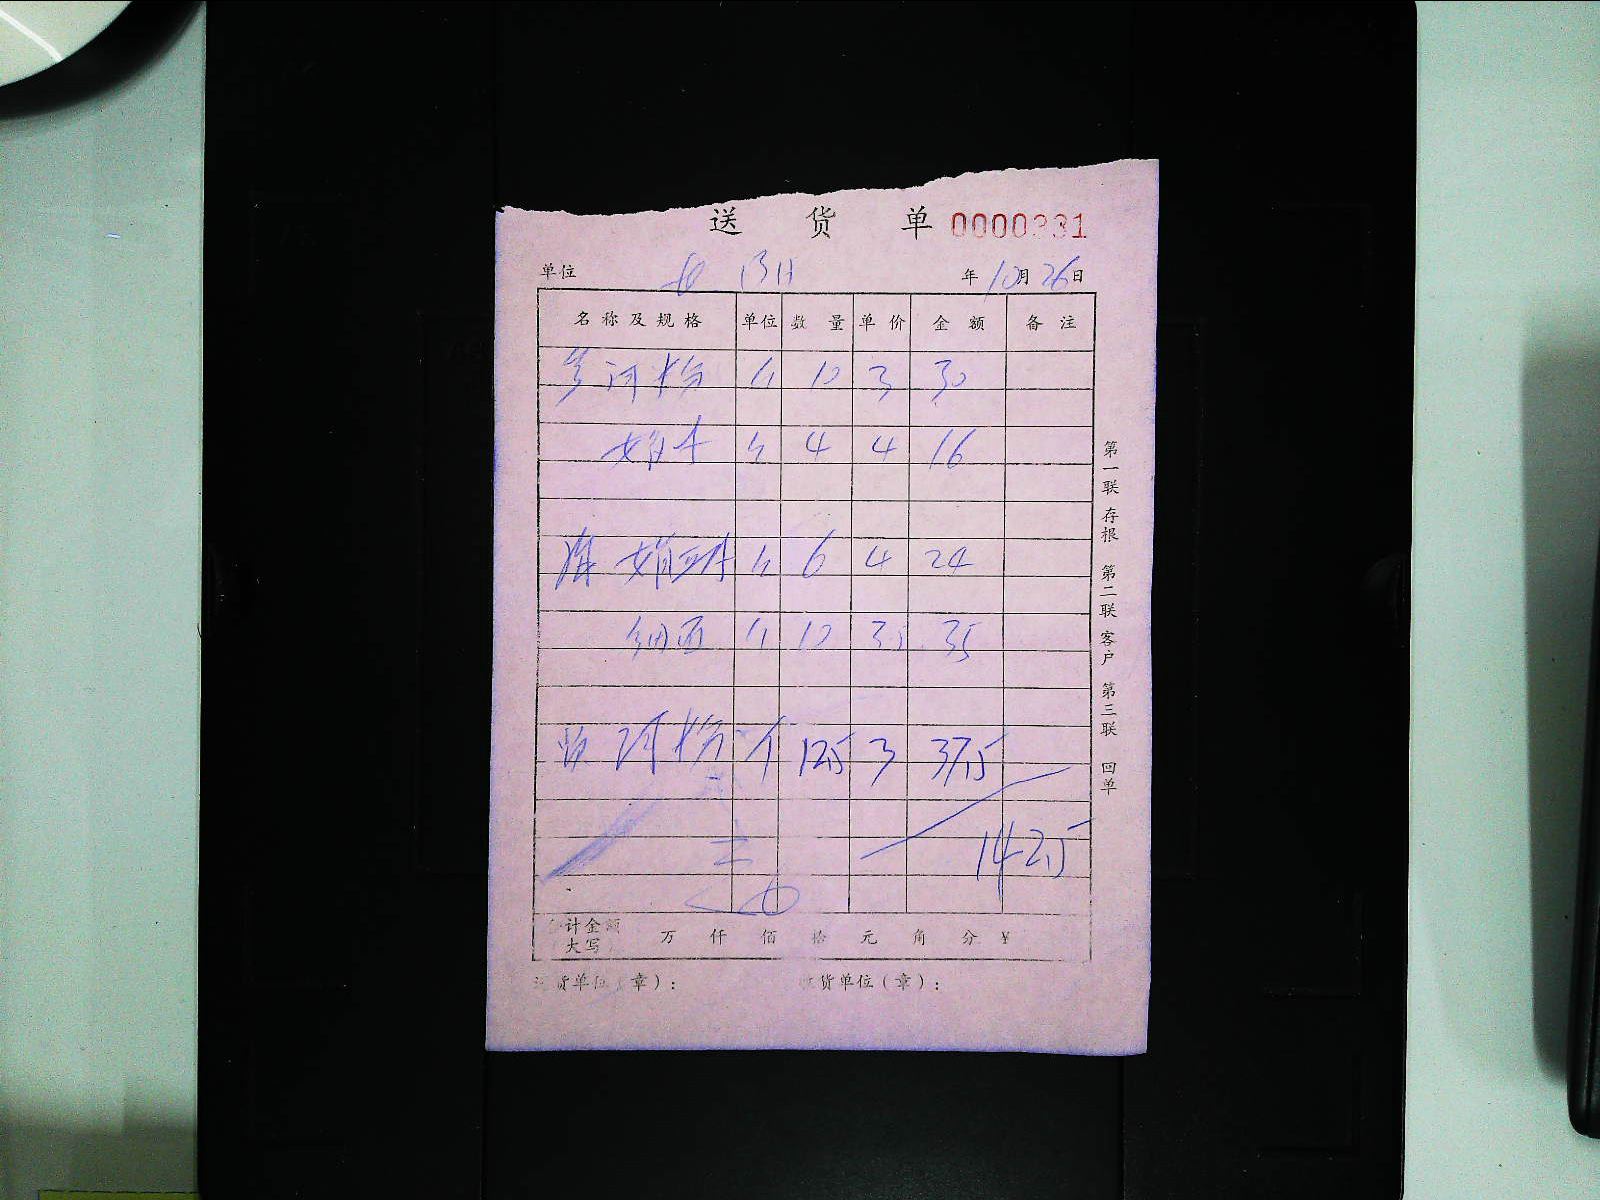 送 货 单 0000331
单位 年10月26日
名 称 及 规 格 单位 数 量 单 价 金 额 备 注
河粉 个 10 3 30
个 4 4 16
个 6 4 24
细面 个 10 35 35
河粉 个 125 3 375
1425
合计金额
(大写) 万 仟 佰 拾 元 角 分 ¥
送货单位(章): 收货单位(章):
第一联 存根 第二联 客户 第三联 回单